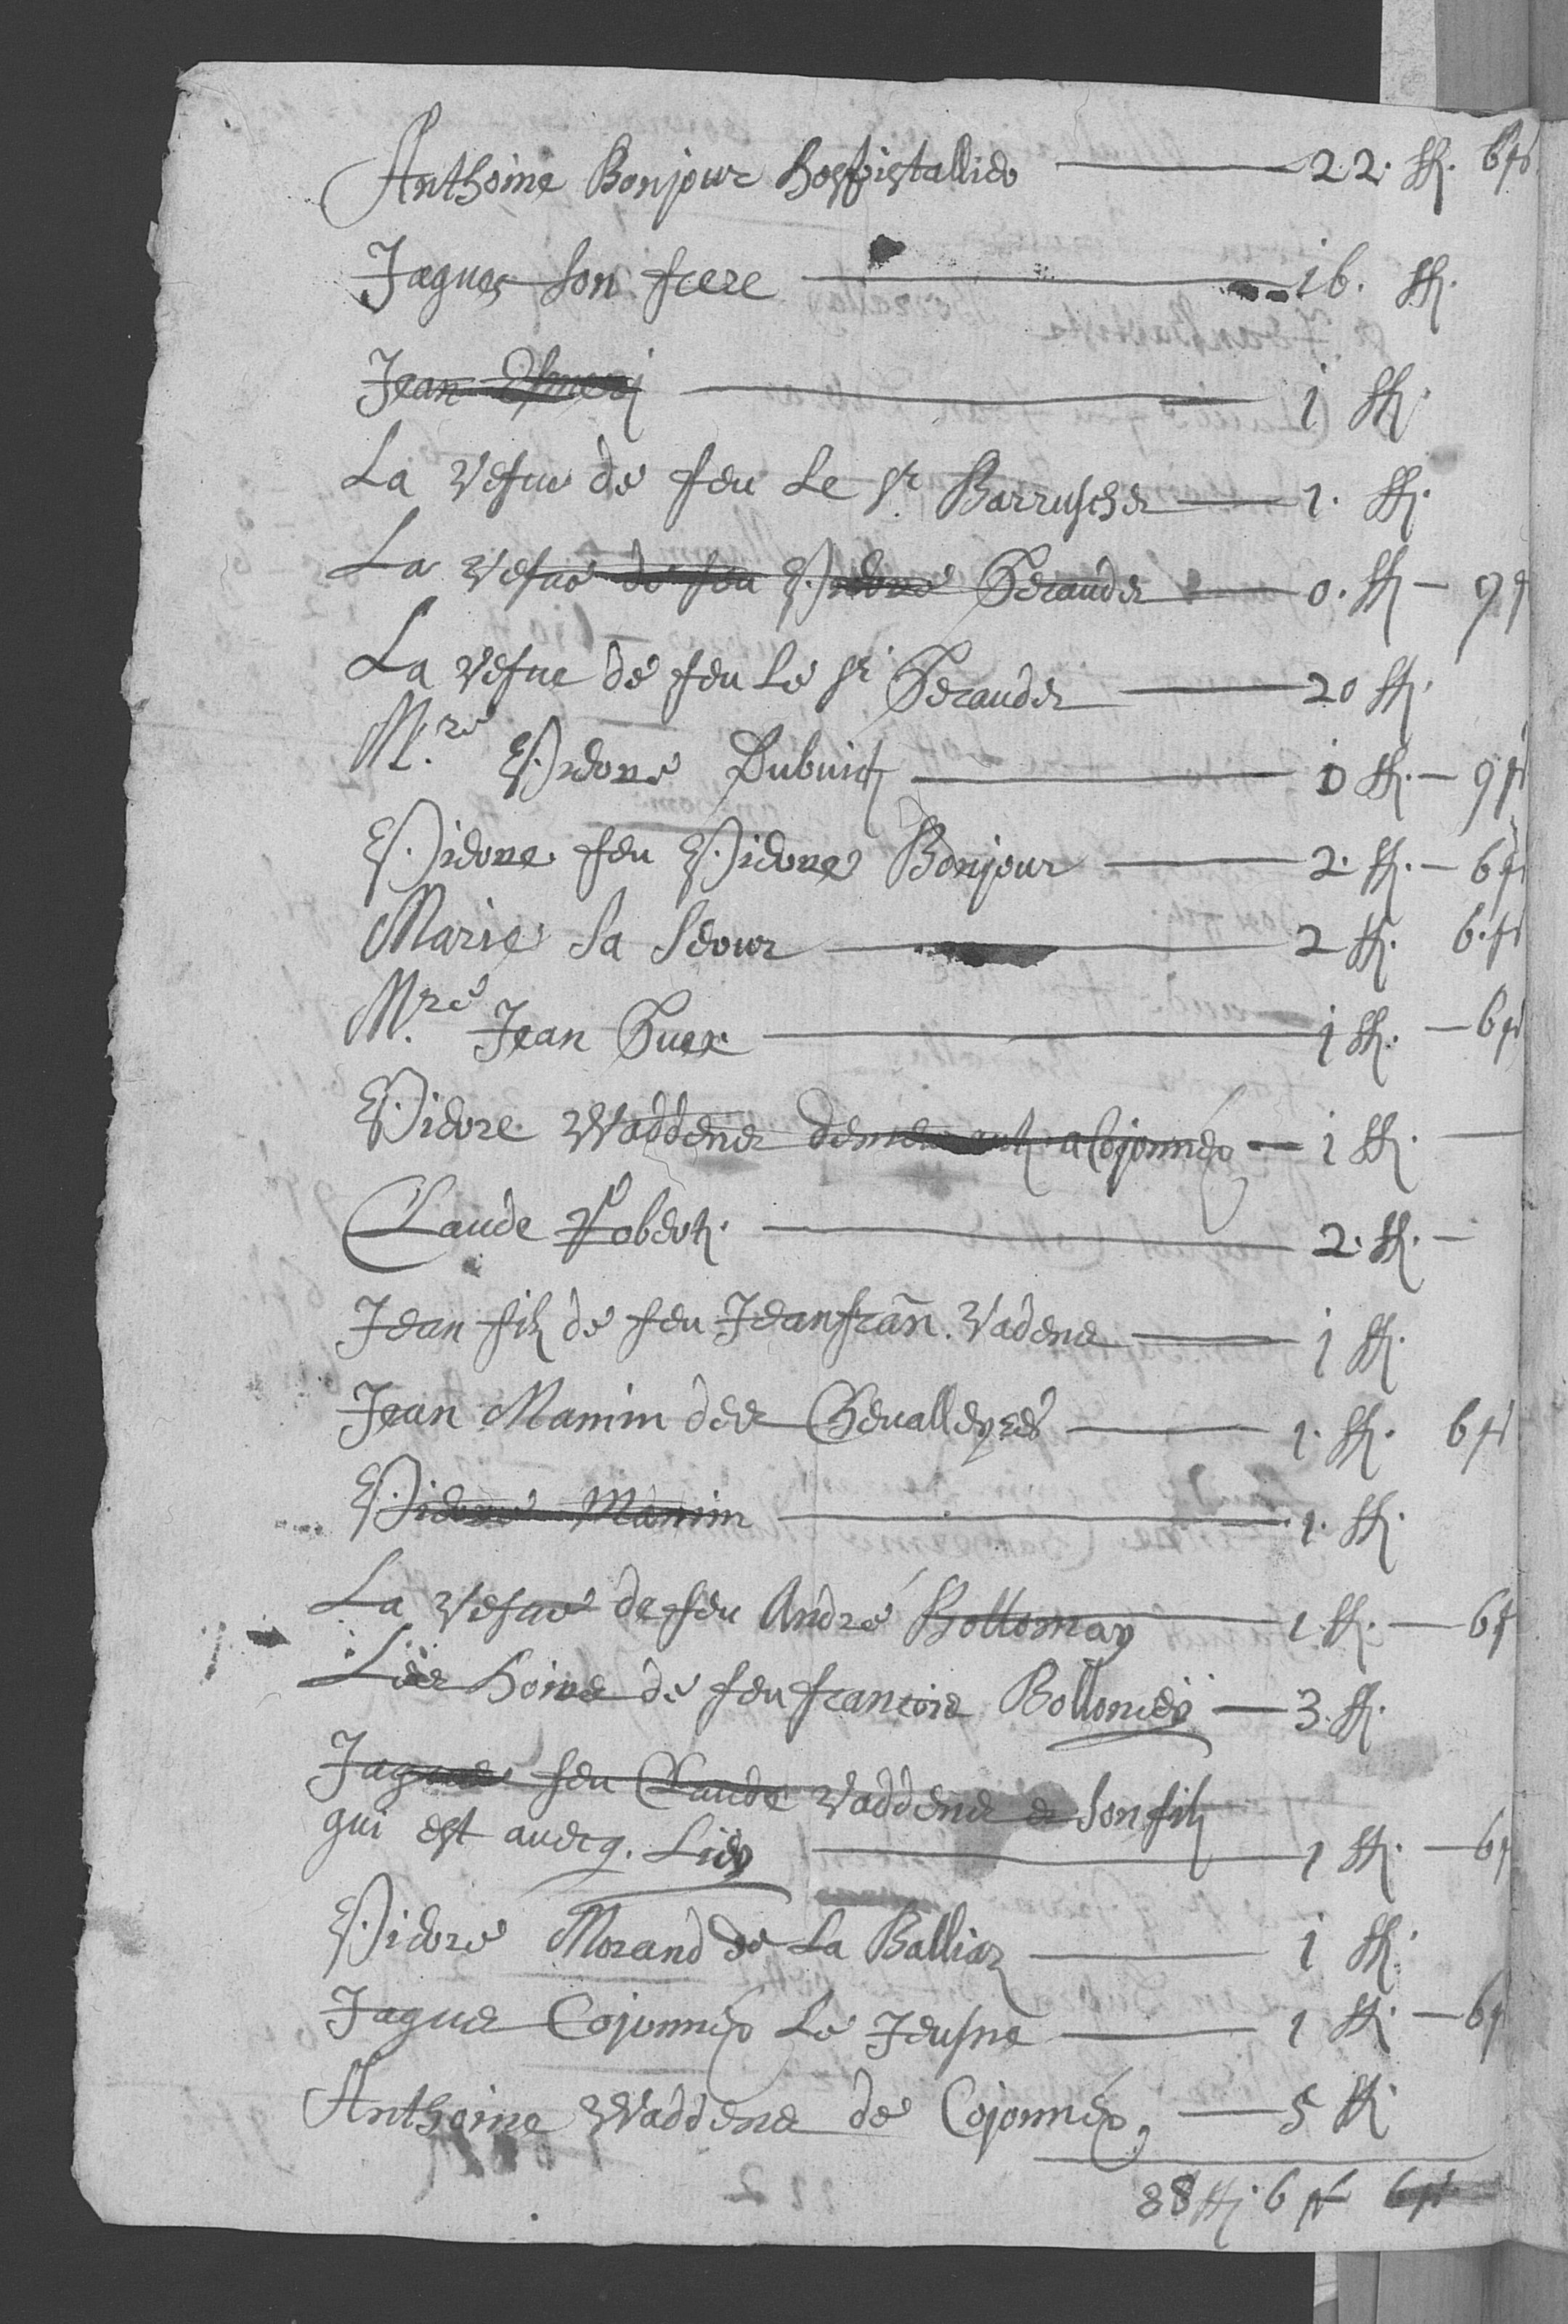 Anthoine Bonjour hospistallier — 22. ß. 6 ₰
Jaques son frere — 16. ß.
Jean — 1 ß.
La vefue de feu le Sr. Barruscher — 1. ß.
La vefue de feu Pierre Herauder — 0. ß — 9 ₰
La vefue de feu le Sr. Herauder — 20 ß.
M.re Pierre — 0 ß. — 9 ₰
Pierre feu Pierre Bonjour — 2. ß. — 6 ₰
Marie sa seour — 2 ß. 6. ₰
M.re Jean — 1 ß. — 6 ₰
Pierre Waddens demeurant a Cojonnex — 1 ß. —
Claude Robert — 2. ß. —
Jean filz de feu Jeanfran. Vadens — 1 ß.
Jean Mamin des Chevalleyres — 1. ß. 6 ₰
Pierre Mamin — 1. ß.
La vefue de feu André Bollomay — 1 ß. — 6 ₰
Les hoirs de feu francois Bollomey — 3. ß.
Jaques feu Claude Vaddens et son filz
qui est auecq. Luy — 1 ß. — 6 ₰
Pierre Morand de La Balliaz — 1 ß.
Jaques Cojonnex Le Jeusne — 1 ß — 6 ₰
Anthoine Waddens de Cojonnex, — 5 ß
88 ß. 6 ₰ 6 ₰